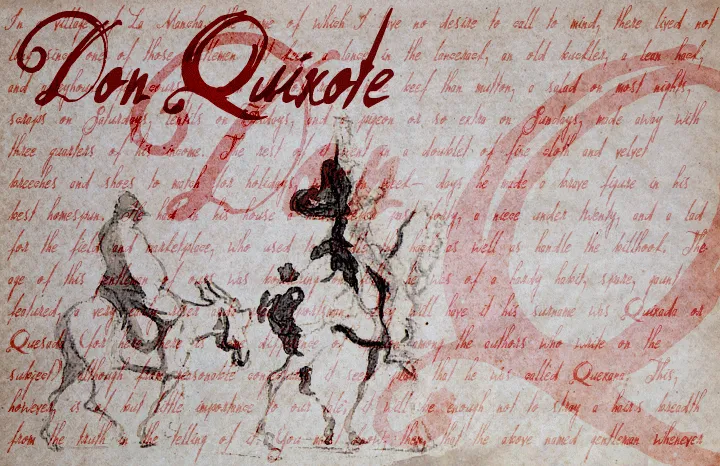 Don Quixote
In village of La Mancha, of which I have no desire to call to mind, there lived not
long since one of those gentlemen a lance in the lance-rack, an old buckler, a lean hack,
and beef than mutton, a salad on most nights,
scraps on Saturdays, lentils on Fridays, and a pigeon or so extra on Sundays, made away with
three quarters of his income. The rest of it went in a doublet of fine cloth and velvet
breeches and shoes to match for holidays, days he made a brave figure in his
best homespun. He had in his house a niece under twenty, and a lad
for the field and marketplace, who used to as well as handle the billhook. The
age of this gentleman of ours was of a hardy habit, spare, gaunt
featured, a very early riser will have it his surname was Quixada or
Quesada (for here there is difference of among the authors who write on the
subject) although from reasonable it seems plain that he was called Quexana. This,
however, is of but little importance to our tale; it will be enough not to stray a hair's breadth
from the truth in the telling of it. You must know then that the above named gentleman whenever